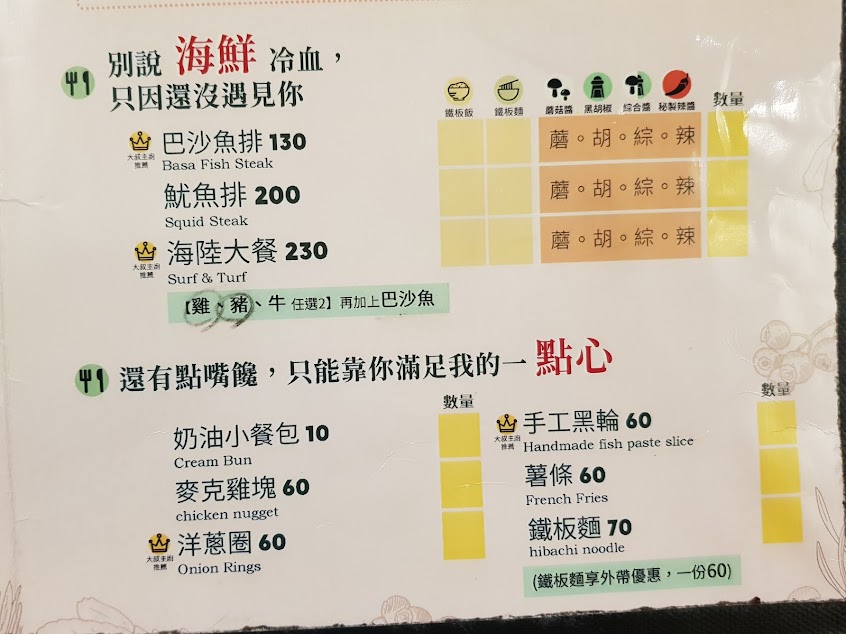 別說 海鮮 冷血，
只因還沒遇見你
鐵板飯 鐵板麵 蘑菇醬 黑胡椒 綜合醬 秘製辣醬 數量
大叔主廚
推薦
巴沙魚排 130
Basa Fish Steak
蘑。胡。綜。辣
魷魚排 200
Squid Steak
蘑。胡。綜。辣
大叔主廚
推薦
海陸大餐 230
Surf & Turf
蘑。胡。綜。辣
【雞、豬、牛 任選2】再加上巴沙魚
還有點嘴饞，只能靠你滿足我的一 點心
數量
奶油小餐包 10
Cream Bun
麥克雞塊 60
chicken nugget
大叔主廚
推薦
洋蔥圈 60
Onion Rings
數量
大叔主廚
推薦
手工黑輪 60
Handmade fish paste slice
薯條 60
French Fries
鐵板麵 70
hibachi noodle
(鐵板麵享外帶優惠，一份60)